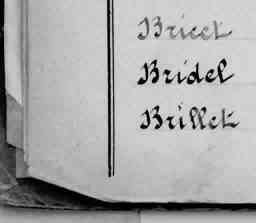 Bricet
Bridel
Brillet